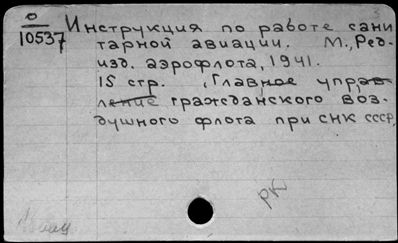 О
10537
Инструкция по работе сани
тарной авиации. М., Ред.
изд. аэрофлота, 1941.
15 стр. , Главное управ
ление гражданского воз-
душного флота при СНК СССР,
РК